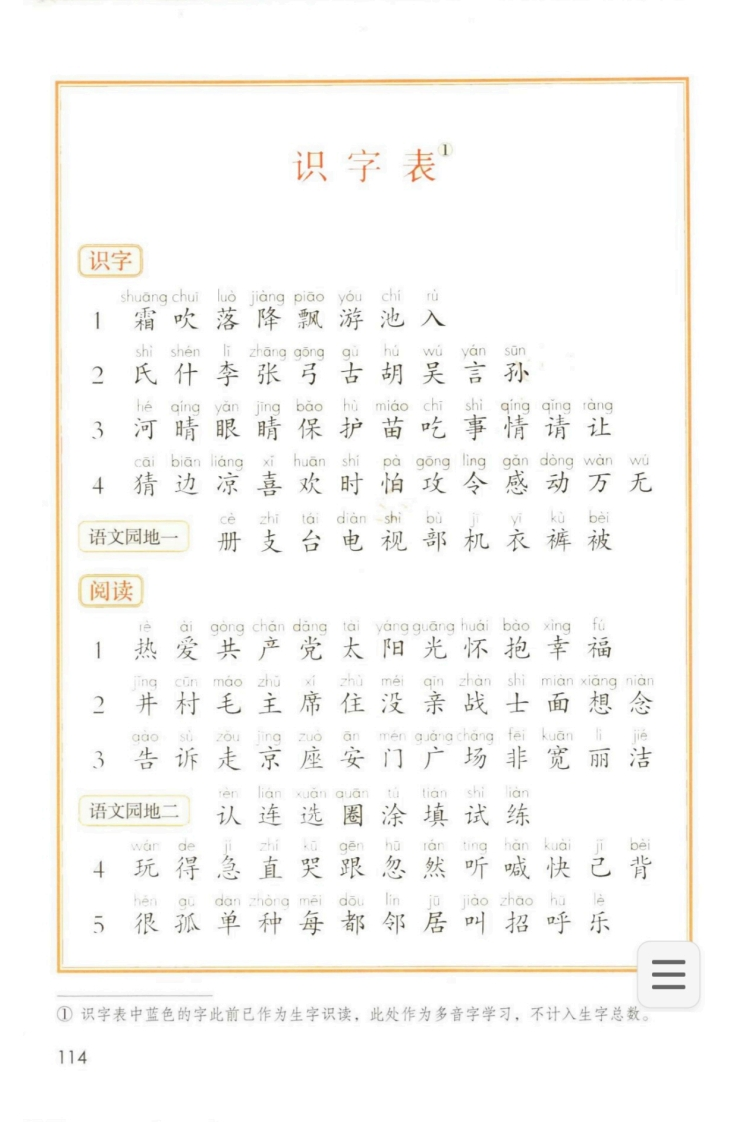 识字表①
识字
shuāng chuī luò jiàng piāo yóu chí rù
1 霜 吹 落 降 飘 游 池 入
shì shén lǐ zhāng gōng gǔ hú wú yán sūn
2 氏 什 李 张 弓 古 胡 吴 言 孙
hé qíng yǎn jīng bǎo hù miáo chī shì qíng qǐng ràng
3 河 晴 眼 睛 保 护 苗 吃 事 情 请 让
cāi biān liáng xǐ huān shí pà gōng lìng gǎn dòng wàn wú
4 猜 边 凉 喜 欢 时 怕 攻 令 感 动 万 无
cè zhī tái diàn shì bù jī yī kù bèi
语文园地一 册 支 台 电 视 部 机 衣 裤 被
阅读
rè ài gòng chǎn dǎng tài yáng guāng huái bào xìng fú
1 热 爱 共 产 党 太 阳 光 怀 抱 幸 福
jǐng cūn máo zhǔ xí zhù méi qīn zhàn shì miàn xiǎng niàn
2 井 村 毛 主 席 住 没 亲 战 士 面 想 念
gào sù zǒu jīng zuò ān mén guǎng chǎng fēi kuān lì jié
3 告 诉 走 京 座 安 门 广 场 非 宽 丽 洁
rèn lián xuǎn quān tú tián shì liàn
语文园地二 认 连 选 圈 涂 填 试 练
wán de jí zhí kū gēn hū rán tīng hǎn kuài jǐ bèi
4 玩 得 急 直 哭 跟 忽 然 听 喊 快 己 背
hěn gū dān zhǒng měi dōu lín jū jiào zhāo hū lè
5 很 孤 单 种 每 都 邻 居 叫 招 呼 乐
① 识字表中蓝色的字此前已作为生字识读，此处作为多音字学习，不计入生字总数。
114